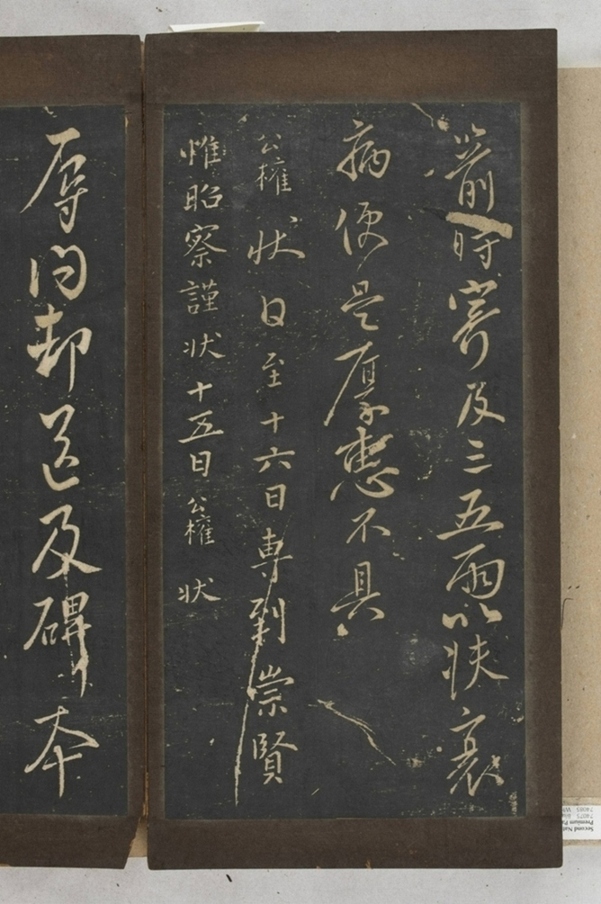 箭時寄及三五兩以扶衰
病便是厚惠不具
公權狀日至十六日専到崇賢
惟昭察謹狀十五日公權狀
辱問却送及碑本
Second Nat
Premium Pa